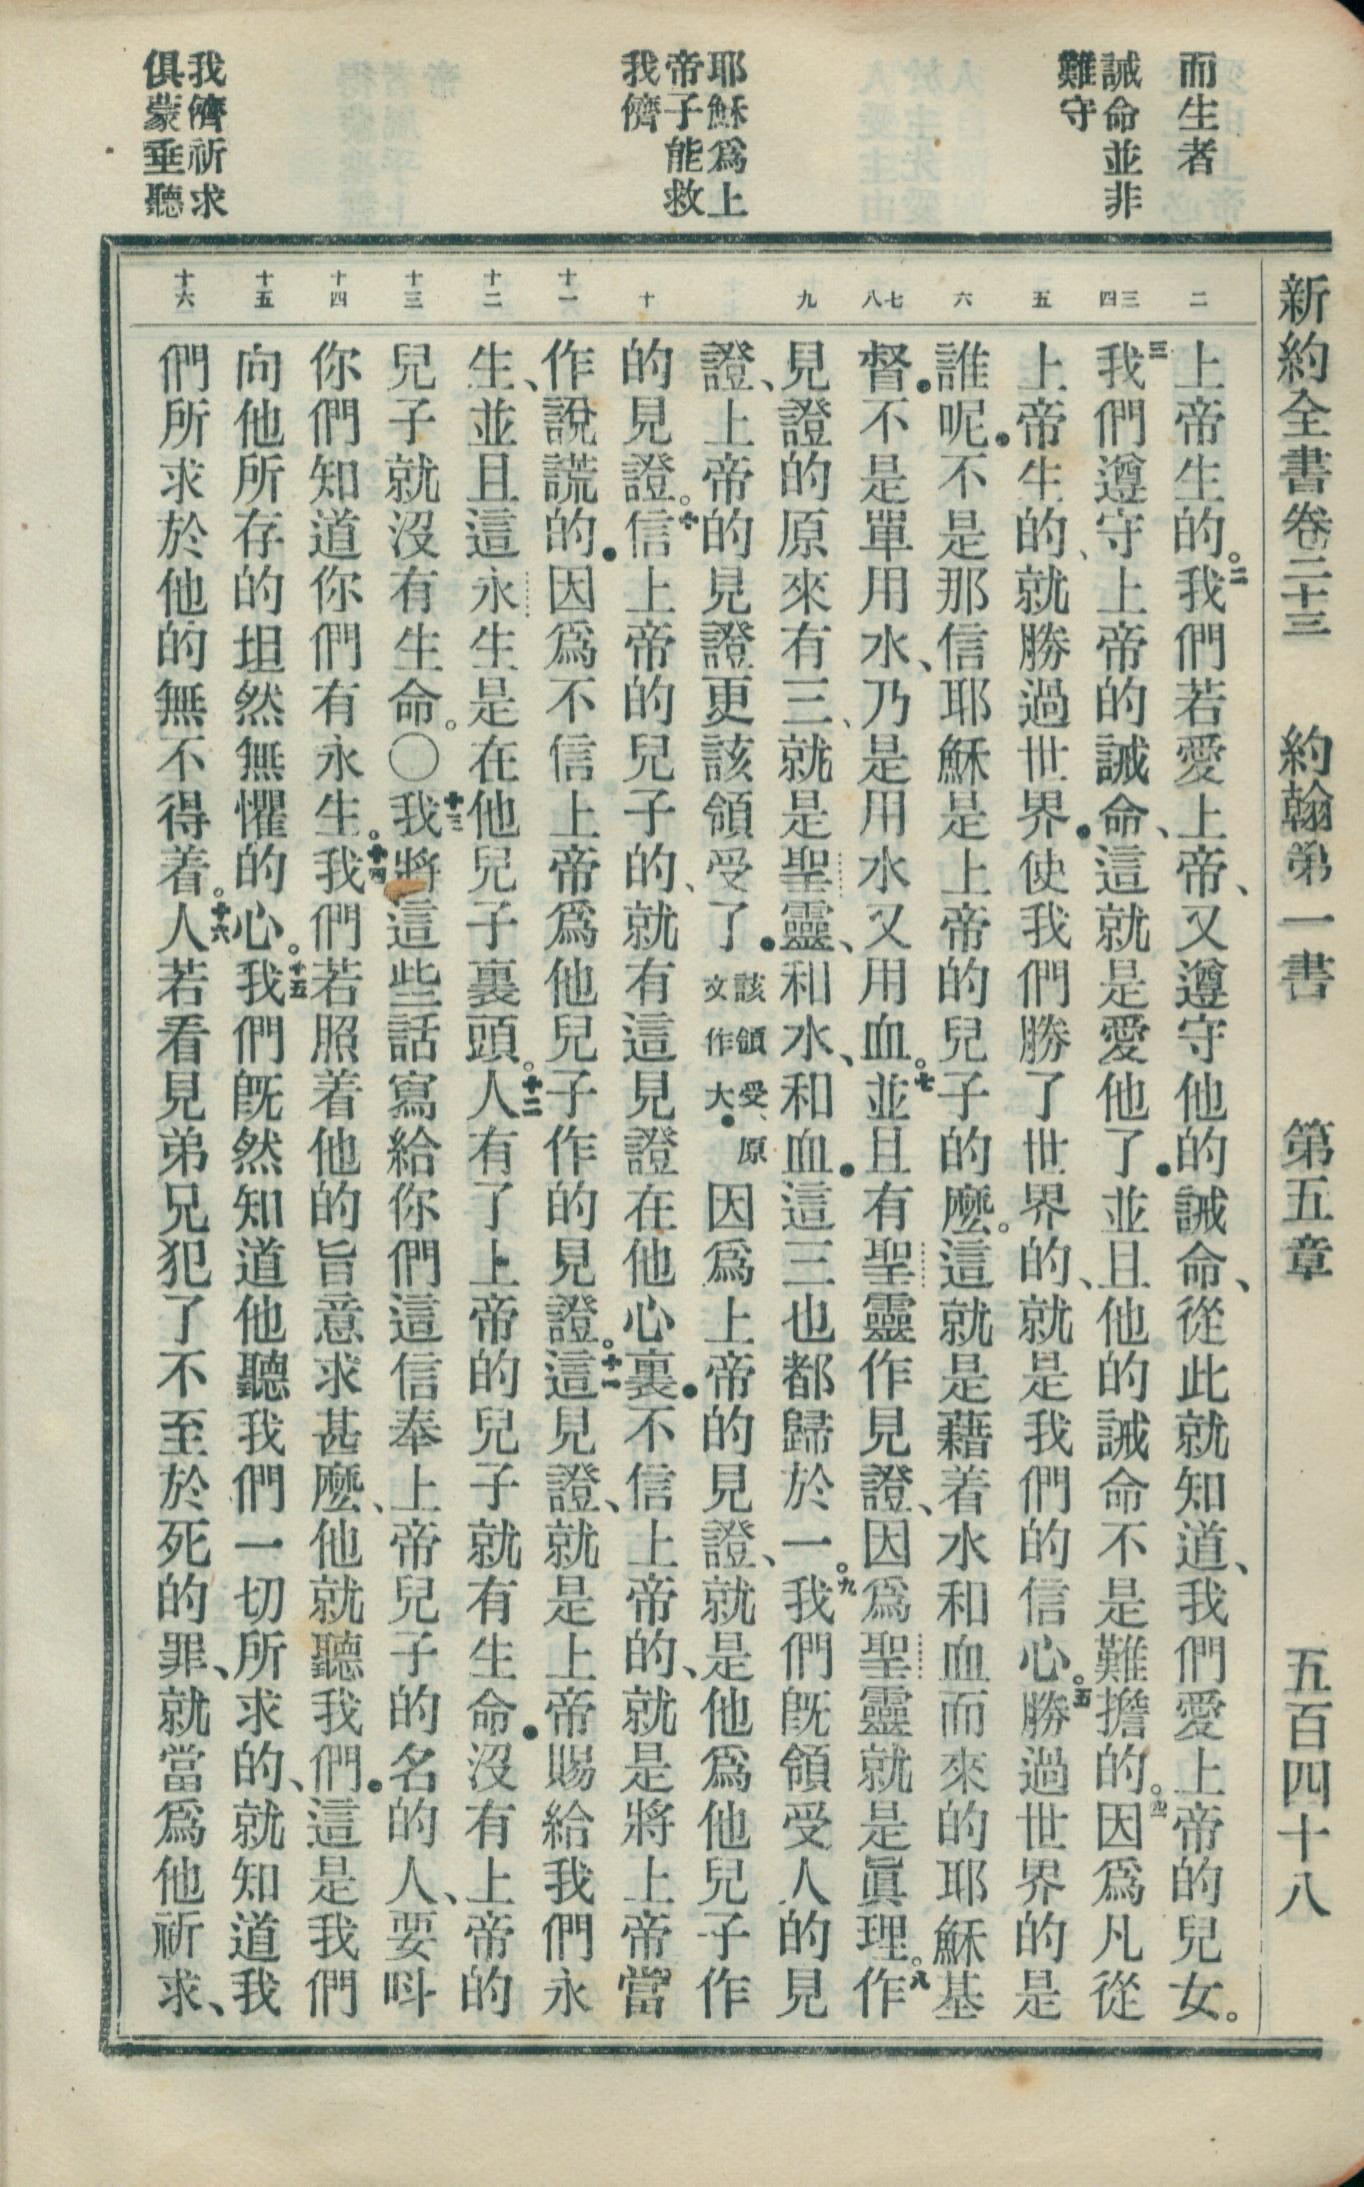 新約全書卷二十三　約翰第一書　第五章　五百四十八
而生者
誡命並非
難守
耶穌爲上
帝子能救
我儕
我儕祈求
俱蒙垂聽
二
三
四
五
六
七
八
九
十
十一
十二
十三
十四
十五
十六
上帝生的。二我們若愛上帝、又遵守他的誡命、從此就知道、我們愛上帝的兒女。
三我們遵守上帝的誡命、這就是愛他了●並且他的誡命不是難擔的。四因爲凡從
上帝生的、就勝過世界●使我們勝了世界的、就是我們的信心。五勝過世界的是
誰呢●不是那信耶穌是上帝的兒子的麼。這就是藉着水和血而來的耶穌基
督●不是單用水、乃是用水又用血。七並且有聖靈作見證、因爲聖靈就是眞理。八作
見證的原來有三、就是聖靈、和水、和血●這三也都歸於一。九我們旣領受人的見
證、上帝的見證更該領受了●該領受、原文作大●因爲上帝的見證、就是他爲他兒子作
的見證。十信上帝的兒子的、就有這見證在他心裏●不信上帝的、就是將上帝當
作說謊的●因爲不信上帝爲他兒子作的見證。十一這見證、就是上帝賜給我們永
生、並且這永生是在他兒子裏頭。十二人有了上帝的兒子就有生命●沒有上帝的
兒子就沒有生命。〇十三我將這些話寫給你們這信奉上帝兒子的名的人、要呌
你們知道你們有永生。十四我們若照着他的旨意求甚麼、他就聽我們●這是我們
向他所存的坦然無懼的心。十五我們旣然知道他聽我們一切所求的、就知道我
們所求於他的無不得着。十六人若看見弟兄犯了不至於死的罪、就當爲他祈求、